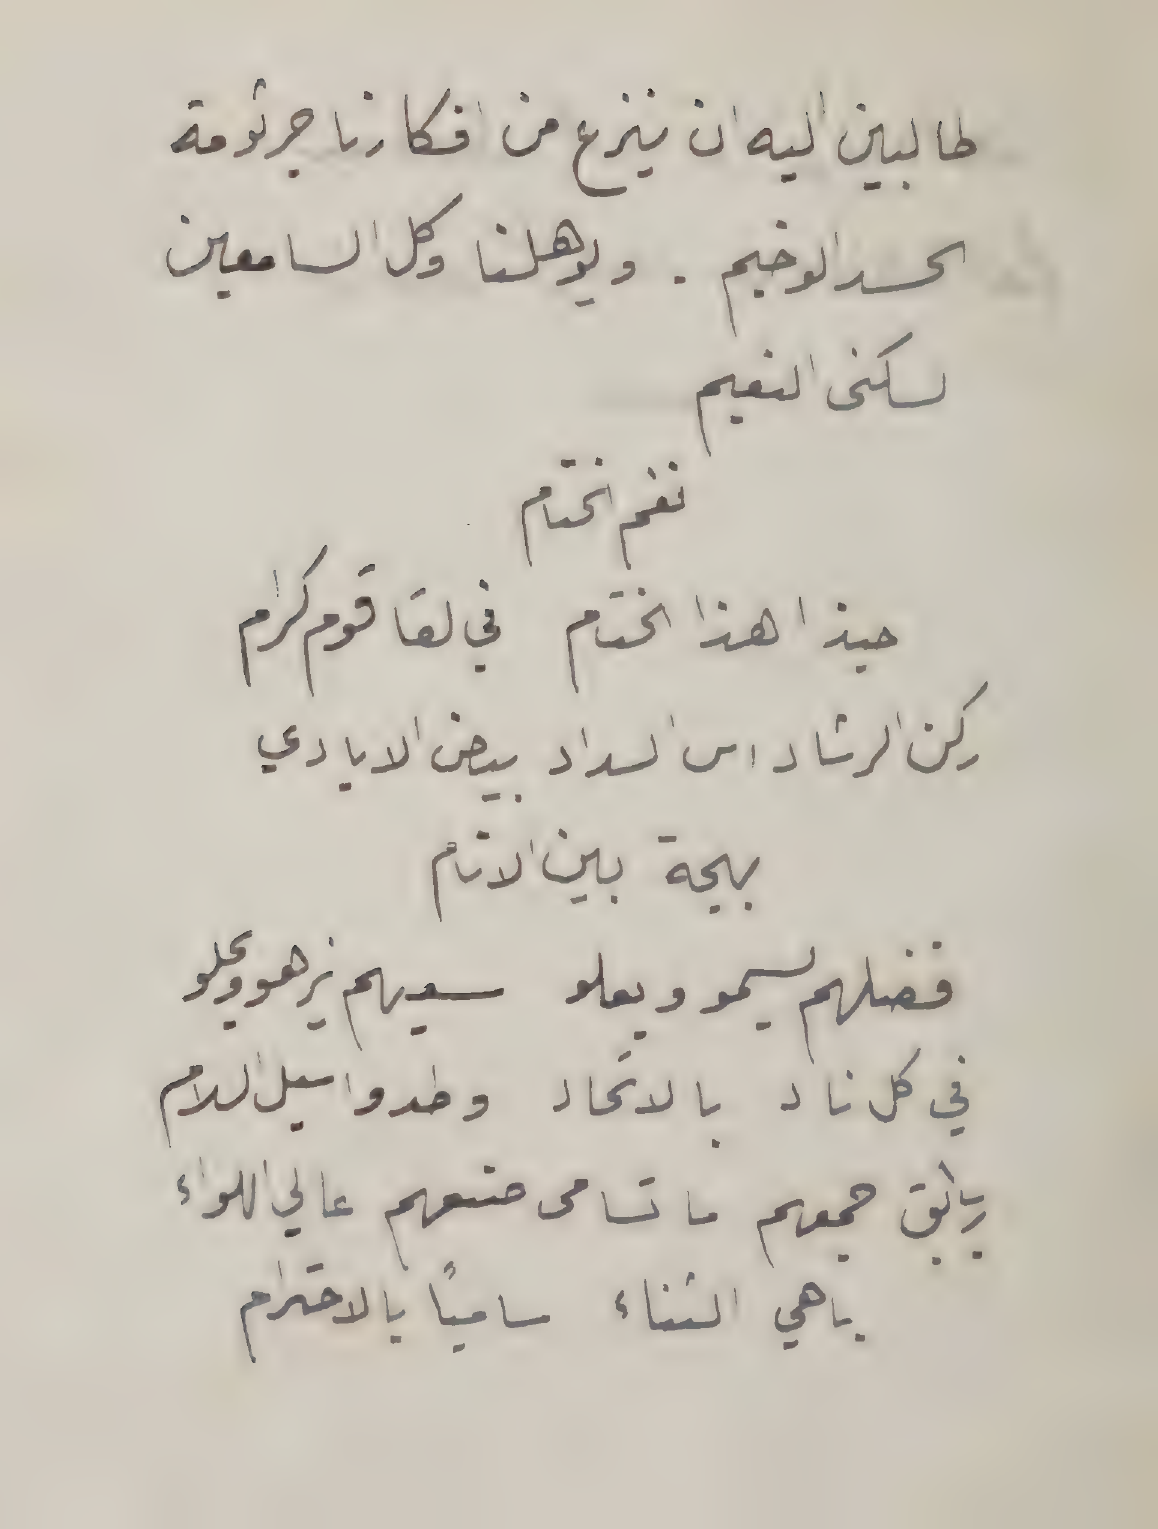 طالبين اليه ان ينزع من افكارنا جرثومة
الحسد الوخيم . ويوهلنا وكل السامعين
لسكنى النعيم
نغم الختام
حبذا هذا الختام في لقا قوم كرام
ركن الرشاد اس السداد بيض الايادي
بهجة بين الانام
فضلهم يسمو ويعلو سعيهم يزهو ويحلو
في كل ناد بالاتحاد وطدوا سبل السلام
جمعهم ما تسامى عالي اللواء
باهي الثناء ساميًا بالاحترام